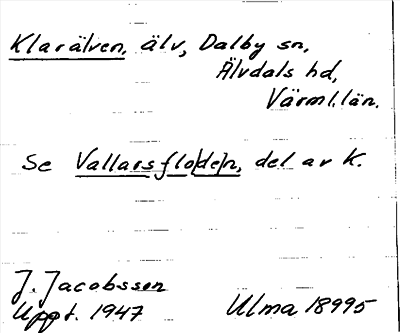 Klarälven, älv, Dalby sn,
Älvdals hd,
Värml. län.
Se Vallarsflo(de)n, del av K.
J. Jacobsson
Uppt. 1947 Ulma 18995